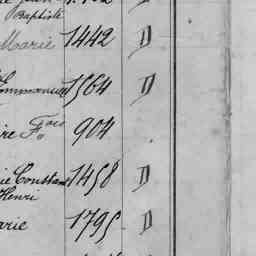 Baptiste
Marie 1442 D
Emmanuel 1564 D
re Fois 904
ie Constant 1458 D
Henri
arie 1795 D